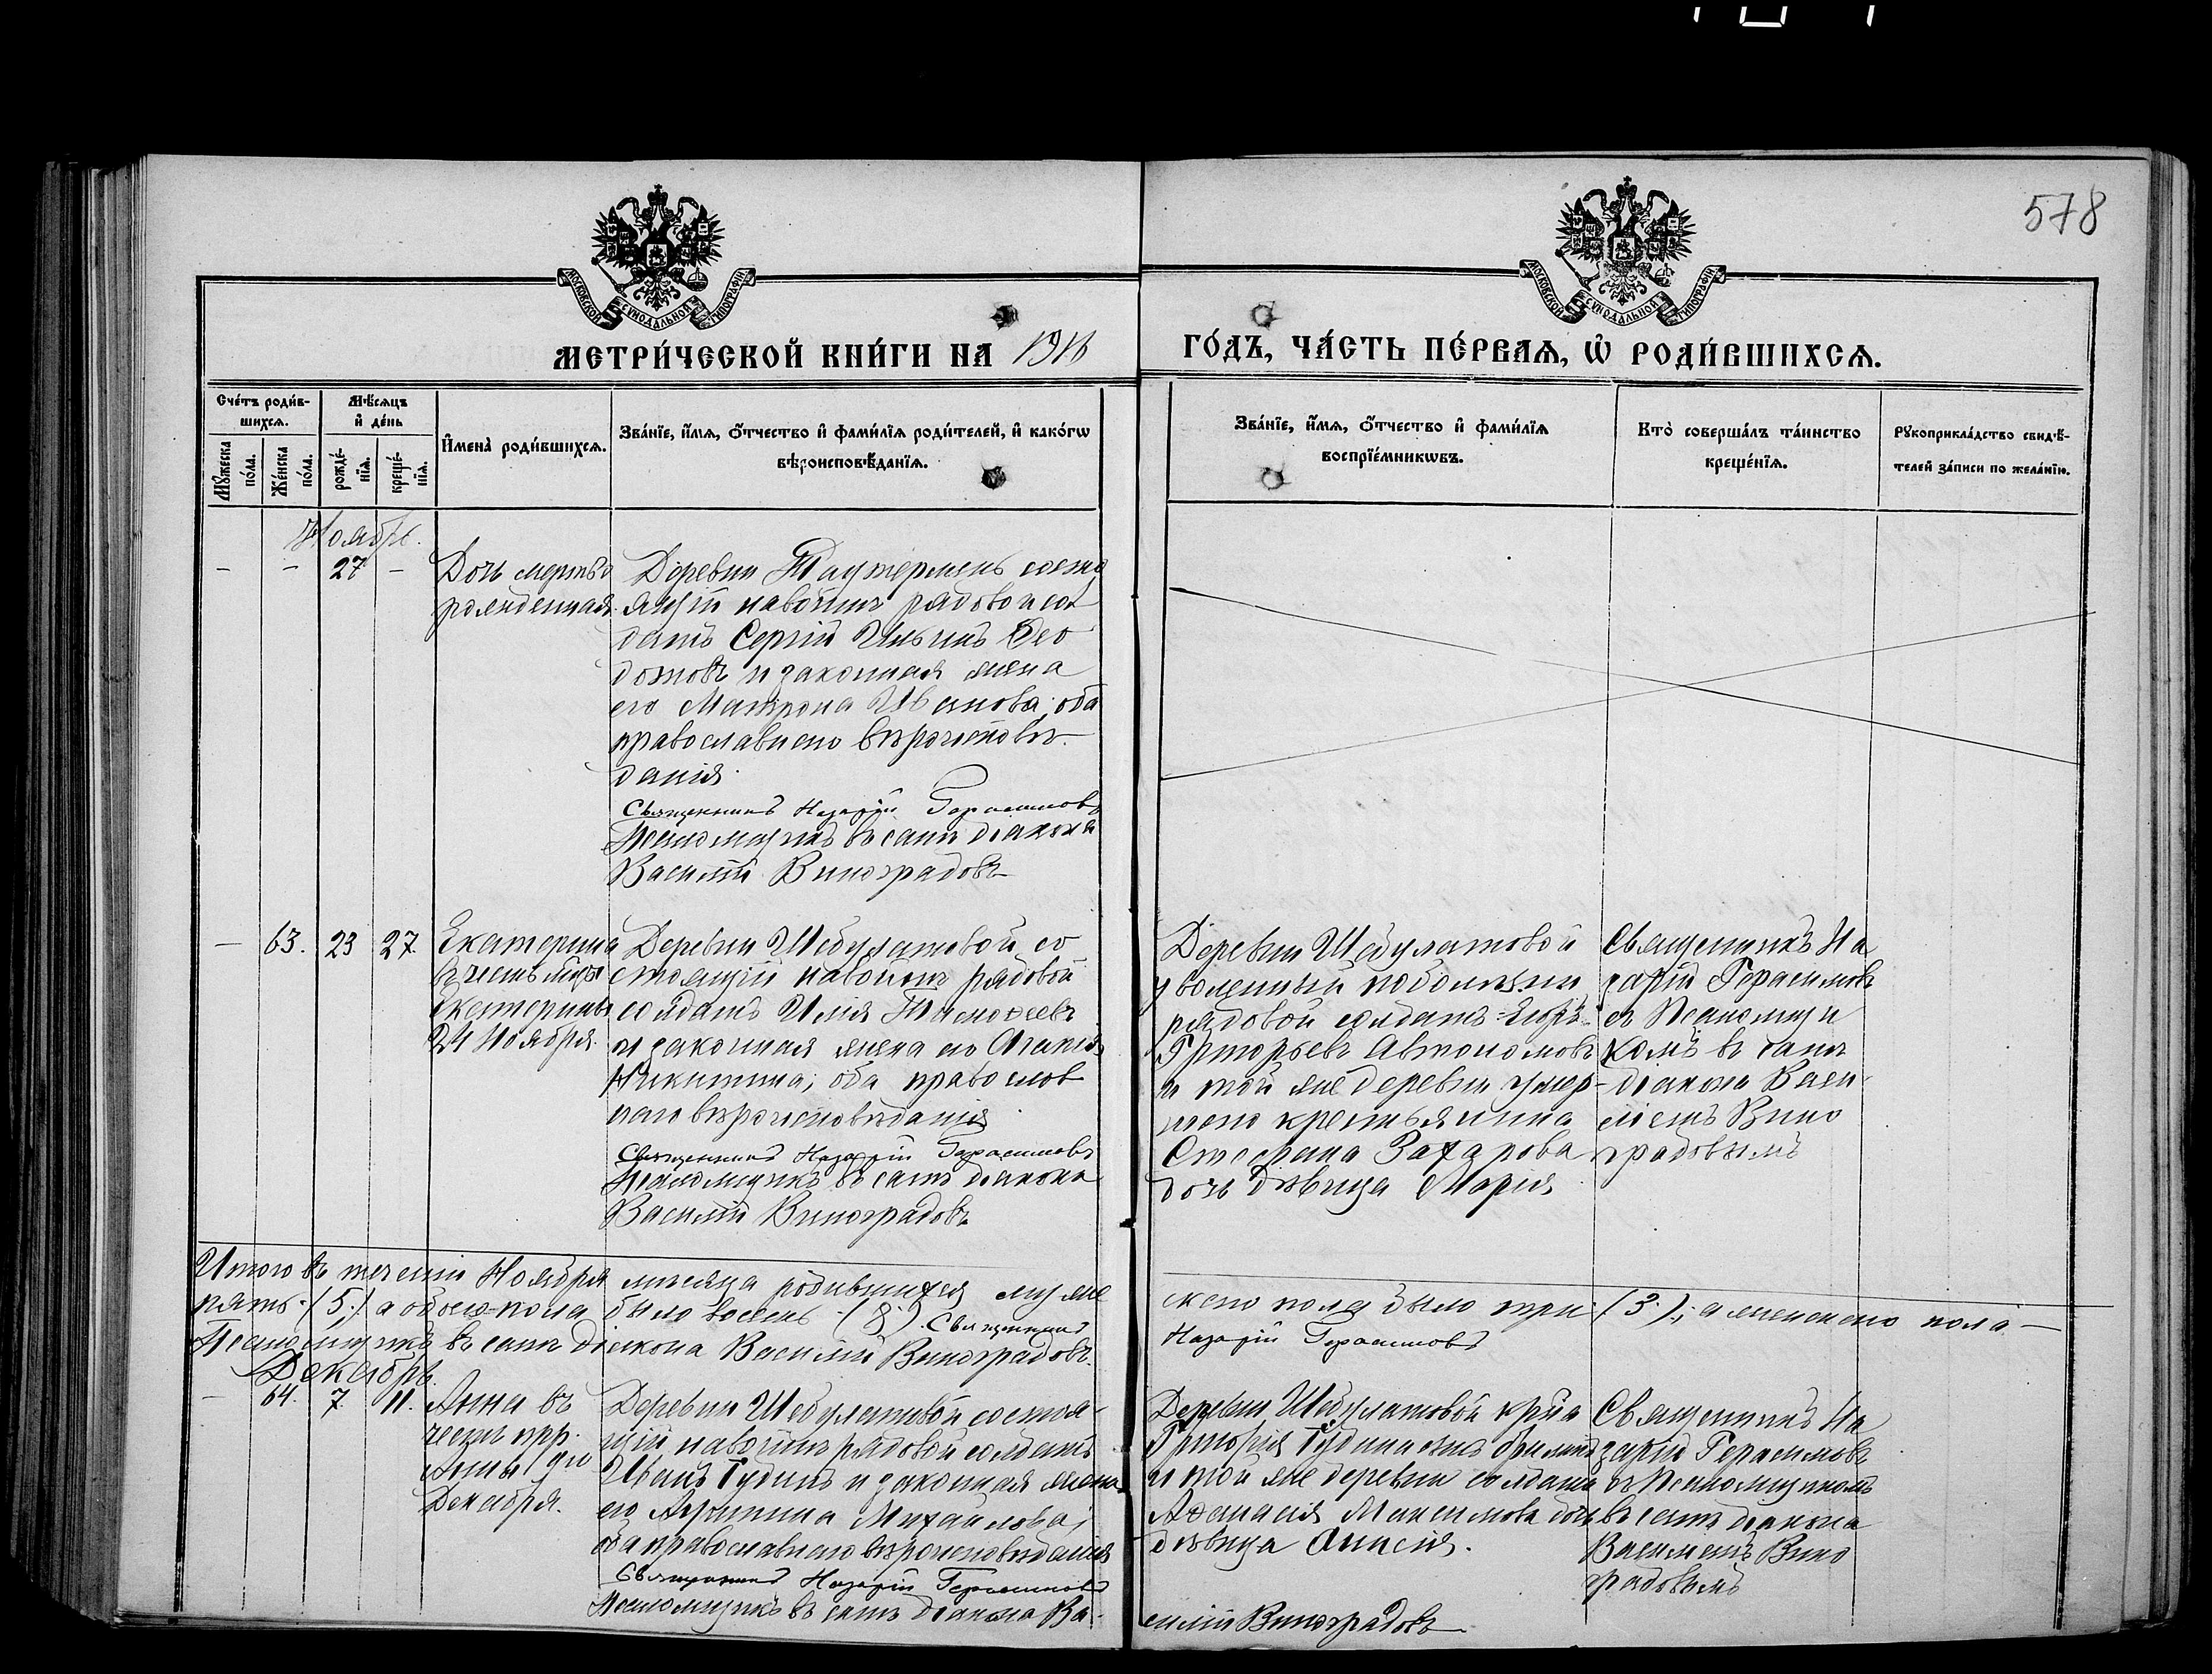 578
МОСКОВСКОЙ СУНОДАЛЬНОЙ ТИПОГРАФІИ
МОСКОВСКОЙ СУНОДАЛЬНОЙ ТИПОГРАФІИ
МЕТРИ́ЧЕСКОЙ КНИ́ГИ НА 1916
ГО́ДЪ, ЧА́СТЬ ПЕ́РВАѦ, Ѡ҆ РОДИ́ВШИХСѦ.
Сче́тъ роди́в-
шихсѧ.
Мѣ́сѧцъ
и҆ де́нь
Мꙋ́жеска по́ла.
Же́нска по́ла.
рожде́-нїѧ.
креще́-нїѧ.
И҆мена̀ роди́вшихсѧ.
Зва́нїе, и҆́мѧ, ѻ҆́тчество и҆ фами́лїѧ роди́телей, и҆ како́гѡ
вѣроисповѣ́данїѧ.
Зва́нїе, и҆́мѧ, ѻ҆́тчество и҆ фами́лїѧ
воспрїе́мникѡвъ.
Кто̀ соверша́лъ та́инство
креще́нїѧ.
Рꙋкоприкла́дство свидѣ́-
телей за́писи по жела́нїю.
Ноябрь.
– – 27 –
Дочь мертво
рожденная.
Деревни состо
ящій на войнѣ рядовой сол
датъ Сергій Ильинъ Ѳео
дотовъ и законная жена
его Матрона Иванова, оба
православнаго вѣроисповѣ
данія.
Священникъ Назарій Герасимовъ
Псаломщикъ въ санѣ діакона
Василій Виноградовъ
– 63. 23 27.
Екатерина
въ честь муч.
Екатерины
24 Ноября.
Деревни Шебулатовой со
стоящій на войнѣ рядовой
солдатъ Илія Тимоѳеевъ
и законная жена его Агапія
Никитина, оба православ
наго вѣроисповѣданія
Священникъ Назарій Герасимовъ
Псаломщикъ въ санѣ діакона
Василій Виноградовъ
Деревни Шебулатовой
уволенный по болѣзни
рядовой солдатъ
Григорьевъ Автономовъ
и той же деревни умер-
шаго крестьянина
Стефана Захарова
дочь дѣвица Марія
Священникъ На
зарій Герасимовъ
съ Псаломщи
комъ въ санѣ
діакона Васи
ліемъ Вино
градовымъ
Итого въ теченіи Ноября мѣсяца родившихся муже
скаго пола было три (3.); а женскаго пола –
пять (5.) а обоего пола было восемь (8). Священникъ
Назарій Герасимовъ
Псаломщикъ въ санѣ діакона Василій Виноградовъ.
Декабрь.
– 64. 7. 11.
Анна въ
честь прр.
Анны 9го
Декабря.
Деревни Шебулатовой состоя-
щій на войнѣ рядовой солдатъ
Иванъ Гудинъ и законная жена
его Агриппина Михайлова,
оба православнаго вѣроисповѣданія
Священникъ Назарій Герасимовъ
Псаломщикъ въ санѣ діакона Ва-
силій Виноградовъ
Деревни Шебулатовой
Григорія Гудина
и той же деревни солдата
Аѳанасія Максимова дочь
дѣвица Анисія.
Священникъ На
зарій Герасимовъ
съ Псаломщикомъ
въ санѣ діакона
Василіемъ Вино
градовымъ